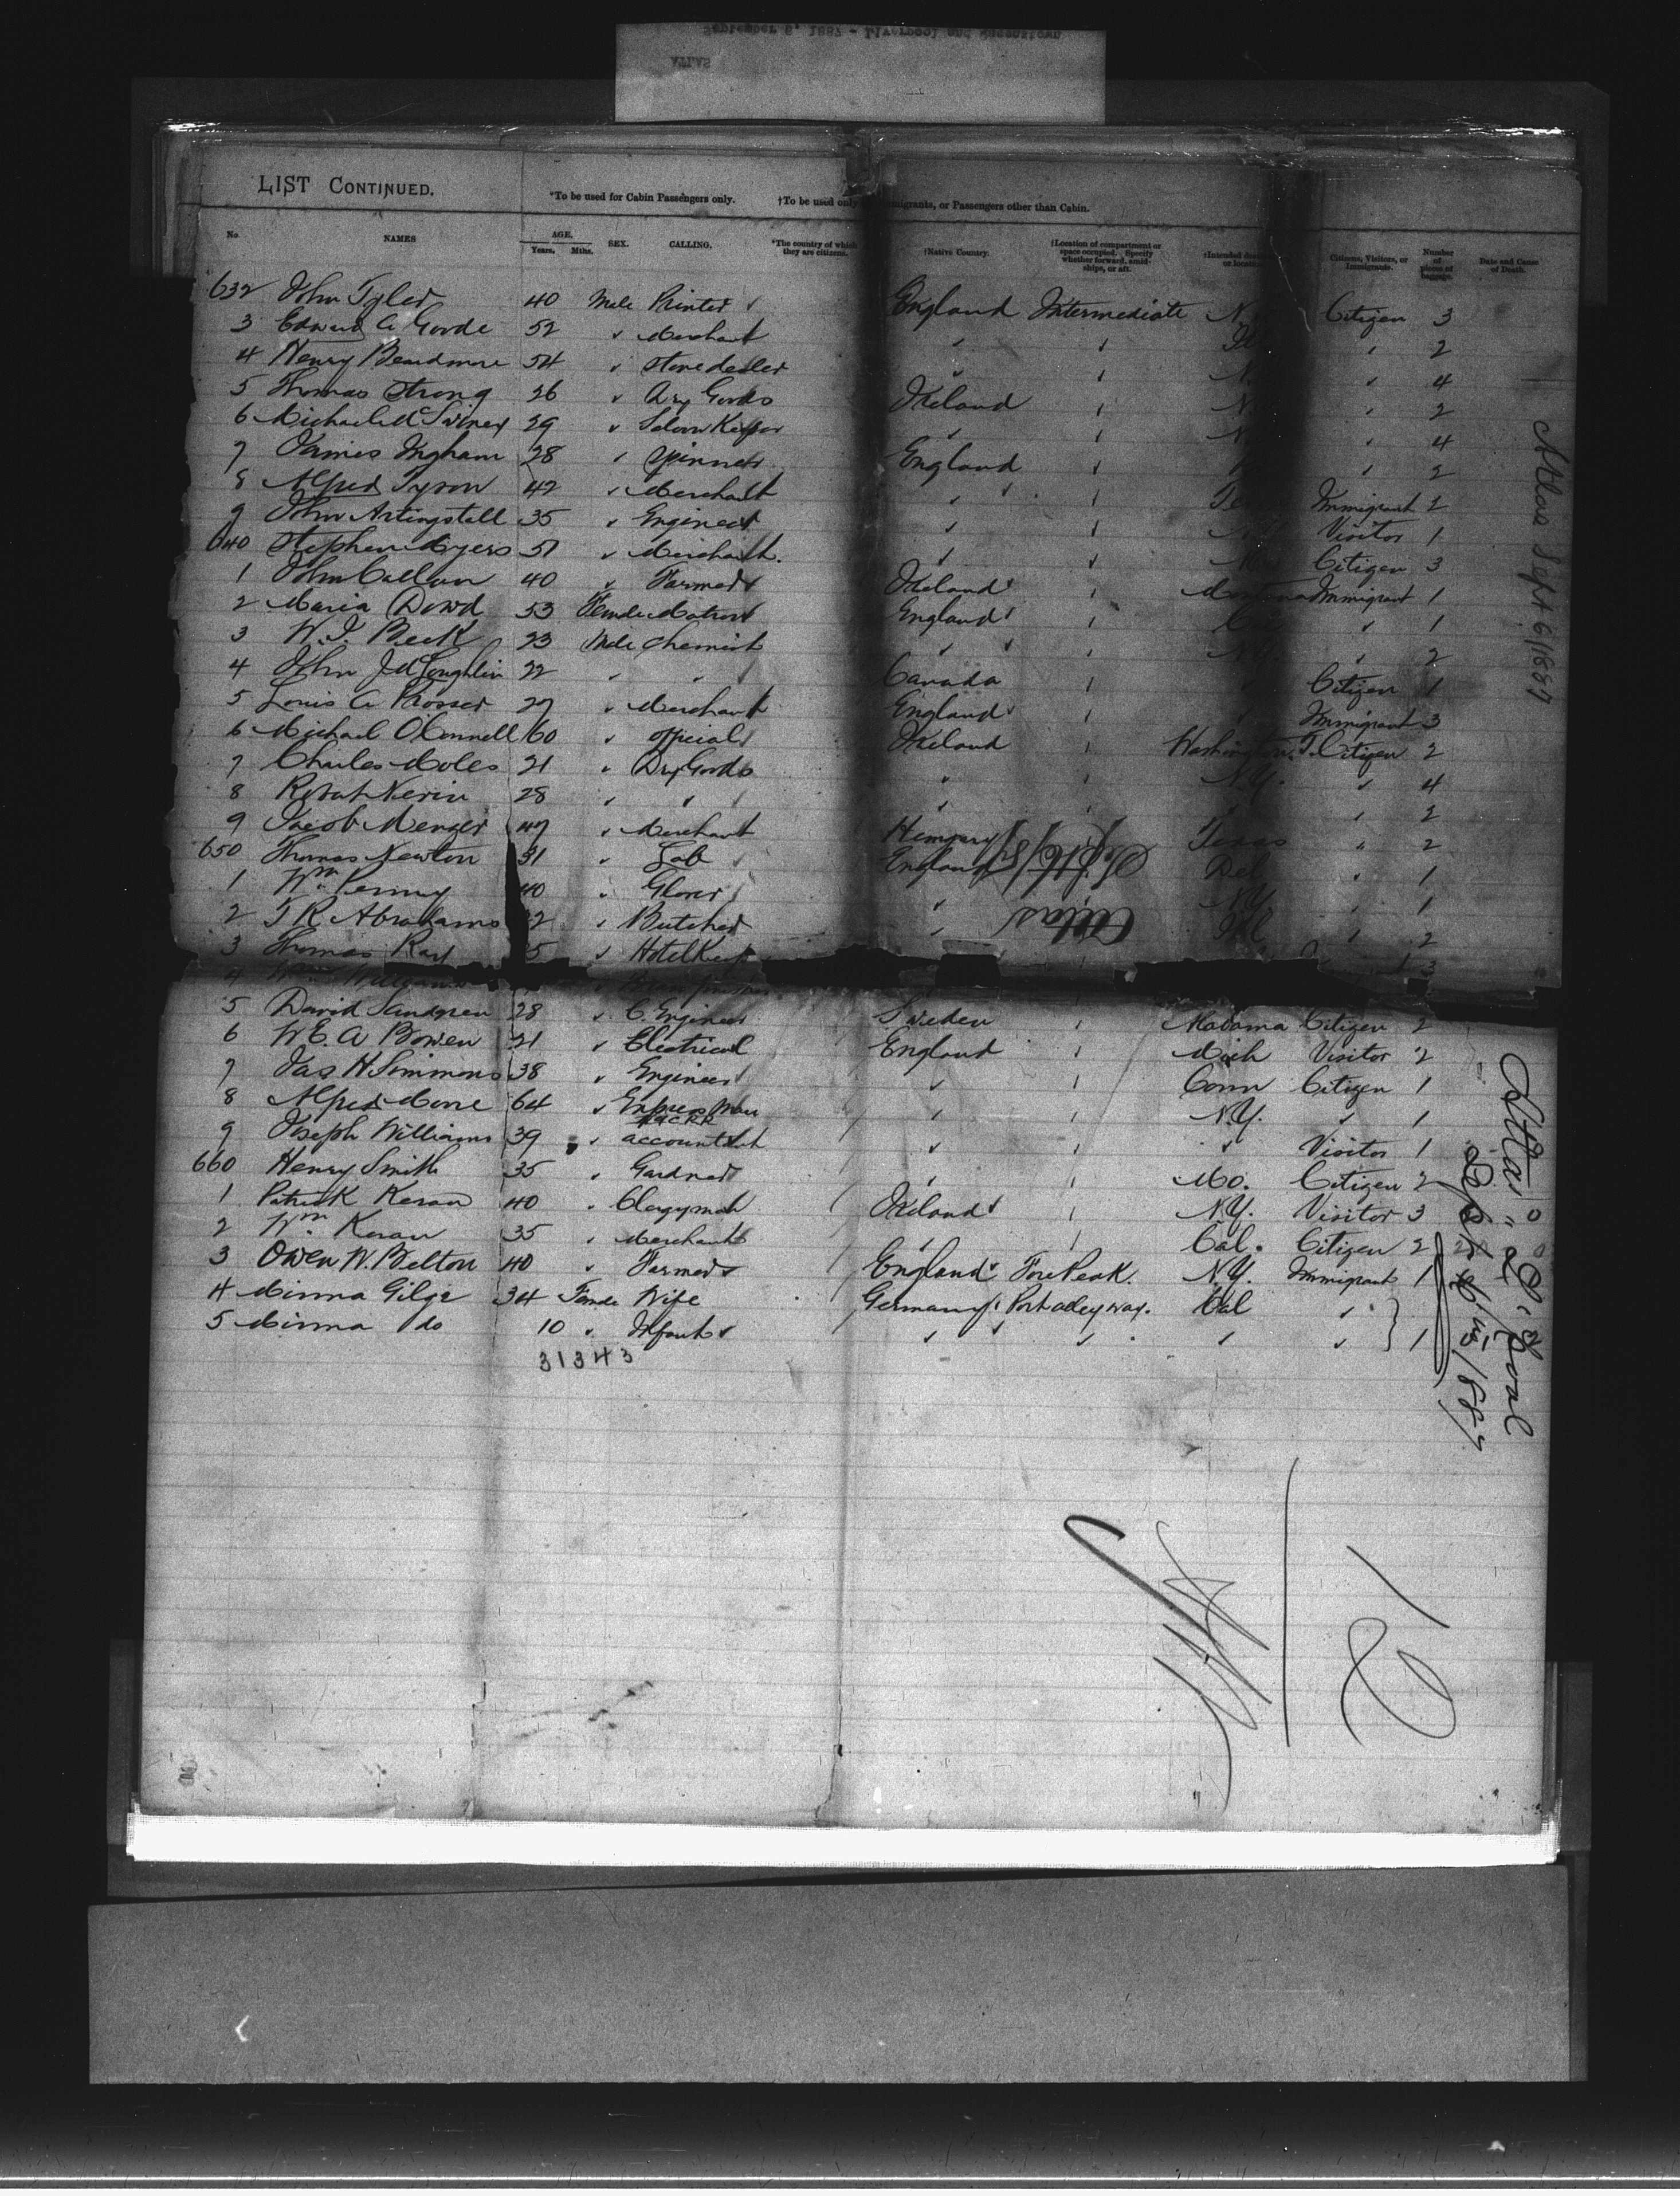 September 6, 1887 - Liverpool and Queenstown
ATLAS
LIST CONTINUED.
*To be used for Cabin Passengers only. †To be used only migrants, or Passengers other than Cabin.
No NAMES AGE. Years. Mths. SEX. CALLING. *The country of which they are citizens. †Native Country. †Location of compartment or space occupied. Specify whether forward, amidships, or aft. †Intended Citizens, Visitors, or Immigrants. Number of pieces of baggage. Date and Cause of Death.
632 John Tyler 40 Male Printer England Intermediate N. Citizen 3
3 Edward A Goode 52 " Merchant " " " 2
4 Henry Beardmore 54 " Stonedealer " " N. " 4
5 Thomas Strong 26 " Dry Goods Ireland " N. " 2
6 Michael McSwiney 29 " Saloon Keeper " " N. " 4
7 James Ingham 28 " Spinner England " " 2
8 Alfred Tyson 42 " Merchant " " Immigrant 2
9 John Artingstall 35 " Engineer " " Visitor 1
640 Stephen Myers 51 " Merchant. " " Citizen 3
1 John 40 " Farmer Ireland " Montana Immigrant 1
2 Maria Dowd 53 Female Matron England " " 1
3 W. J. Beck 23 Male Chemist " " N.Y. " 2
4 John McLoughlin 22 " " Canada " " Citizen 1
5 Louis A Prosser 27 " Merchant England " " Immigrant 3
6 Michael O'Connell 60 " Official Ireland " Washington T. Citizen 2
7 Charles Coles 21 " Dry Goods " " N.Y. " 4
8 Robert Nevin 28 " " " " " 2
9 Jacob Menger 47 " Merchant Hungary Texas " 2
650 Thomas Newton 31 " Lab England Del " 1
1 Wm Penny 40 " Glover " N.Y. " 1
2 J R Abrahams 32 " Butcher " " 2
3 Thomas 5 " Hotel Keep 3
Atlas
Sept 6/87
5 David Sandgren 28 " C. Engineer Sweden " Alabama Citizen 2
6 W. E. A Bowen 21 " Electrical England " Mich Visitor 2
7 Jas H Simmons 38 " Engineer " " Conn Citizen 1
8 Alfred 64 " Express Man " " N.Y. " 1
9 Joseph Williams 39 " Accountant " " " Visitor 1
660 Henry Smith 35 " Gardner " " Mo. Citizen 2
1 Patrick Keran 40 " Clergyman Ireland " N.Y. Visitor 3
2 Wm Keran 35 " Merchant " " Cal. Citizen 2
3 Owen W. Belton 40 " Farmer England Fore Peak. N.Y. Immigrant 1
4 Minna Gilge 34 Female Wife Germany Port alleyway. Cal "
5 Minna do 10 " Infant " " " " 1
31343
Atlas Sept 6/1887
Atlas L'pool
Sept 6th/1887